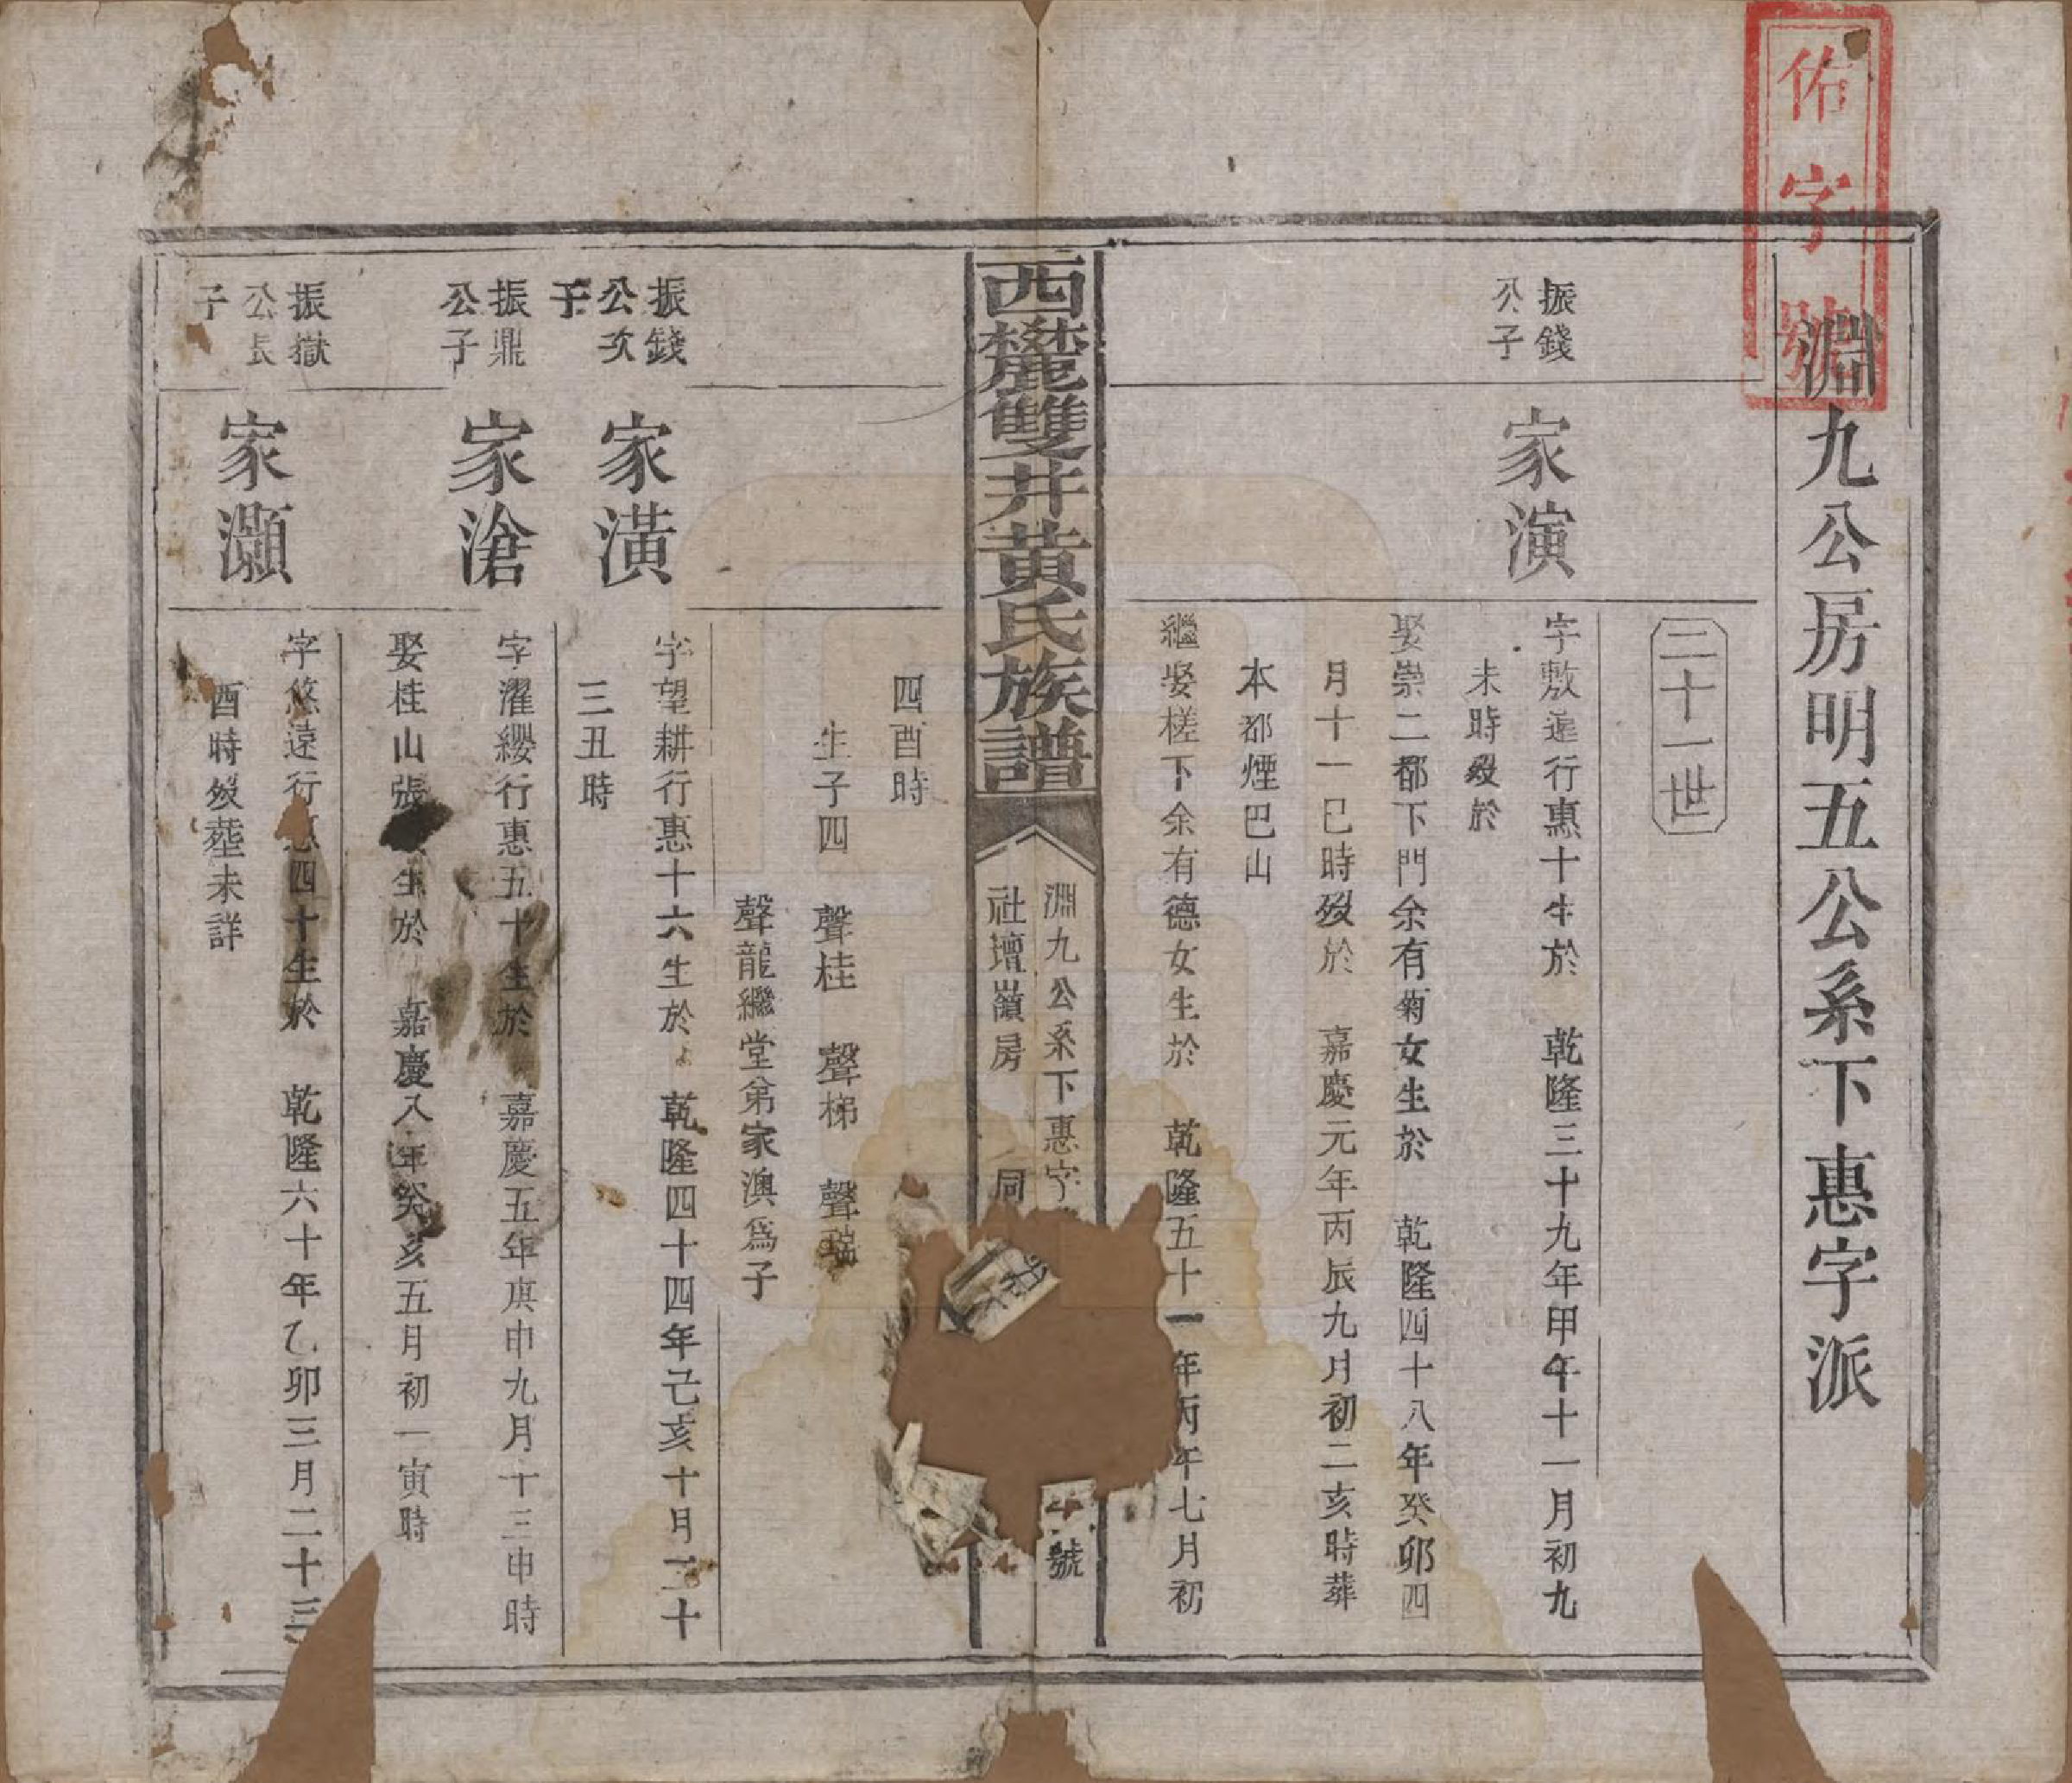 佑字號
淵九公房明五公系下惠字派
二十一世
振錢
公子
家演
字敷進行惠十生於 乾隆三十九年甲午十一月初九
未時歿於
娶崇二都下門余有菊女生於 乾隆四十八年癸卯四
月十一巳時歿於 嘉慶元年丙辰九月初二亥時葬
本都煙巴山
繼娶槎下余有德女生於 乾隆五十一年丙午七月初
西麓雙井黃氏族譜
淵九公系下惠字
號
社壇嶺房 同
四酉時
生子四 聲桂 聲梯 聲瑞
聲龍繼堂弟家澳為子
振錢
公次
子
家潢
字望耕行惠十六生於 乾隆四十四年己亥十月二十
三丑時
振鼎
公子
家滄
字濯纓行惠五十生於 嘉慶五年庚申九月十三申時
娶桂山張 生於 嘉慶八年癸亥五月初一寅時
振嶽
公長
子
家灝
字悠遠行惠四十生於 乾隆六十年乙卯三月二十三
酉時歿塟未詳